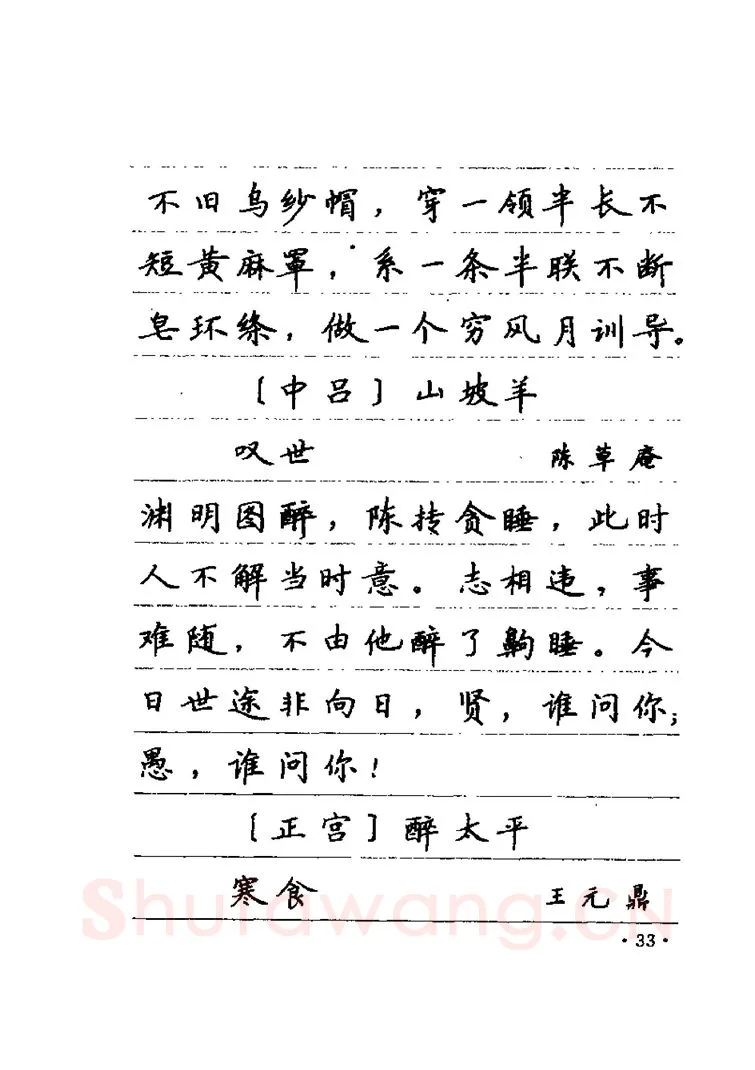 不旧乌纱帽，穿一领半长不
短黄麻罩，系一条半联不断
皂环绦，做一个穷风月训导。
〔中吕〕山坡羊
叹世 陈草庵
渊明图醉，陈抟贪睡，此时
人不解当时意。志相违，事
难随，不由他醉了齁睡。今
日世途非向日，贤，谁问你；
愚，谁问你！
〔正宫〕醉太平
寒食 王元鼎
Shufawang.CN
·33·